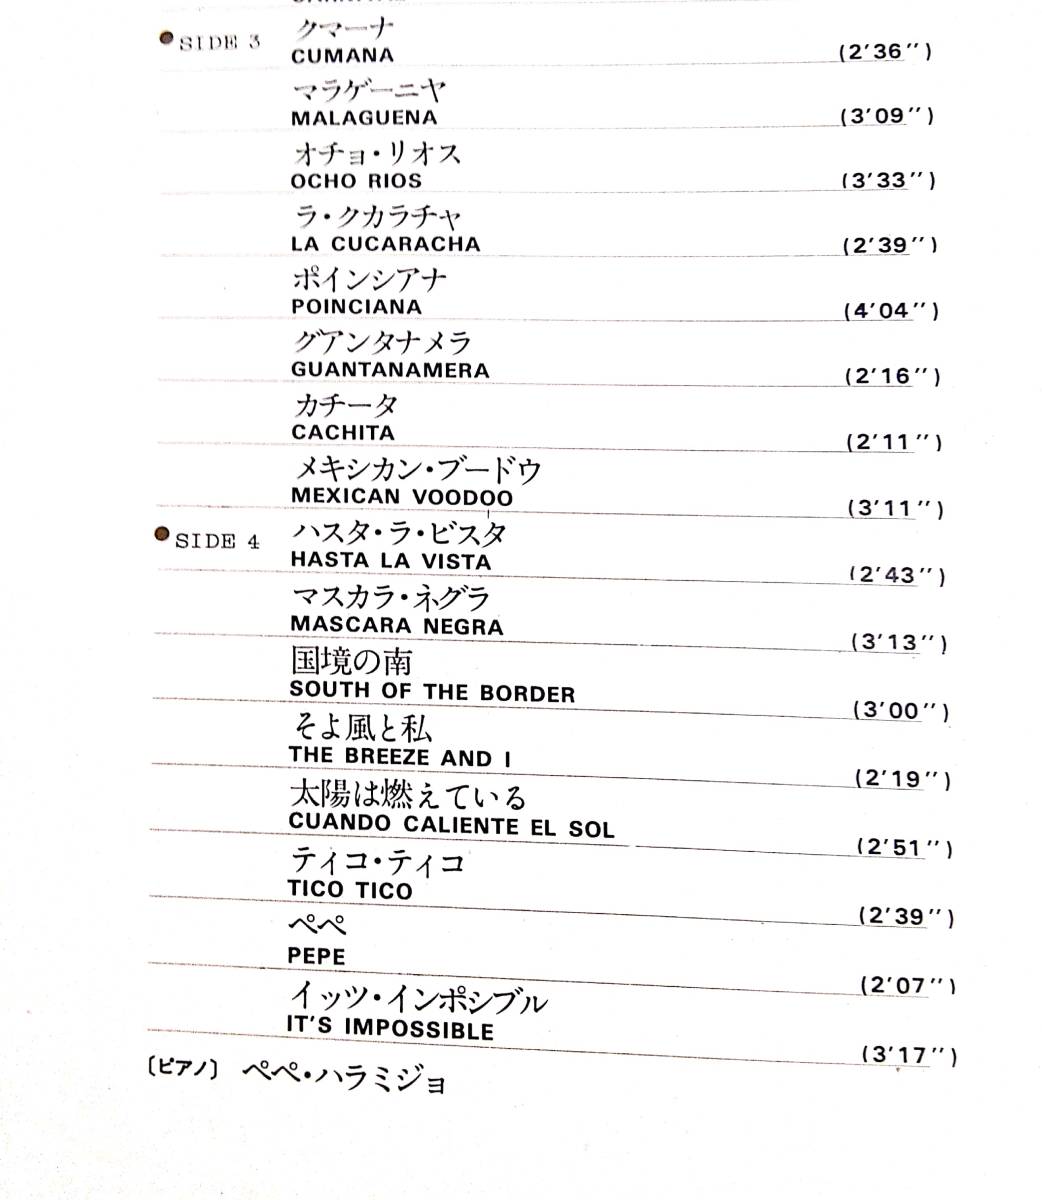 ●SIDE 3 クマーナ
CUMANA (2′36″)
マラゲーニヤ
MALAGUENA (3′09″)
オチョ・リオス
OCHO RIOS (3′33″)
ラ・クカラチャ
LA CUCARACHA (2′39″)
ポインシアナ
POINCIANA (4′04″)
グアンタナメラ
GUANTANAMERA (2′16″)
カチータ
CACHITA (2′11″)
メキシカン・ブードウ
MEXICAN VOODOO (3′11″)
●SIDE 4 ハスタ・ラ・ビスタ
HASTA LA VISTA (2′43″)
マスカラ・ネグラ
MASCARA NEGRA (3′13″)
国境の南
SOUTH OF THE BORDER (3′00″)
そよ風と私
THE BREEZE AND I (2′19″)
太陽は燃えている
CUANDO CALIENTE EL SOL (2′51″)
ティコ・ティコ
TICO TICO (2′39″)
ペペ
PEPE (2′07″)
イッツ・インポシブル
IT'S IMPOSSIBLE (3′17″)
〔ピアノ〕 ペペ・ハラミジョ